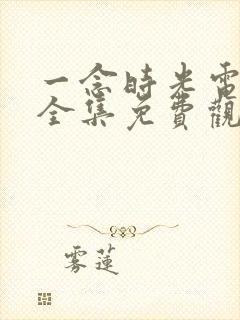 一念時光電
全集免費觀
雾蓮